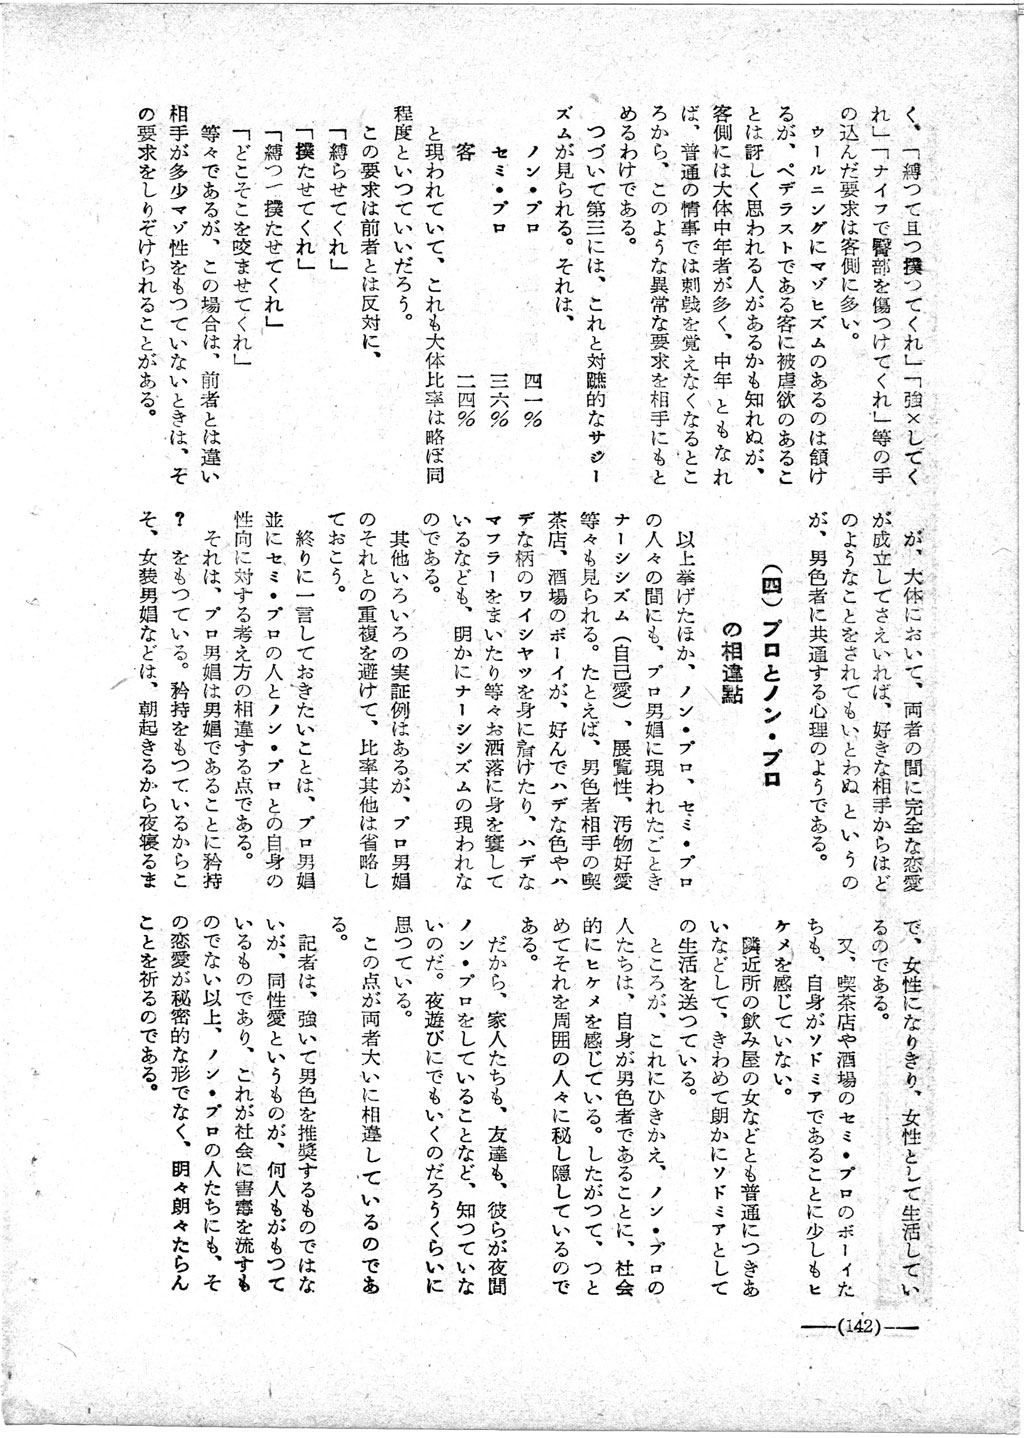 く、「縛つて且つ撲つてくれ」「強×してく
れ」「ナイフで臀部を傷つけてくれ」等の手
の込んだ要求は客側に多い。
ウールニングにマゾヒズムのあるのは頷け
るが、ペデラストである客に被虐欲のあるこ
とは訝しく思われる人があるかも知れぬが、
客側には大体中年者が多く、中年ともなれ
ば、普通の情事では刺戟を覚えなくなるとこ
ろから、このような異常な要求を相手にもと
めるわけである。
つづいて第三には、これと対蹠的なサジー
ズムが見られる。それは、
ノン・プロ 四一%
セミ・プロ 三六%
客 二四%
と現われていて、これも大体比率は略ぼ同
程度といつていいだろう。
この要求は前者とは反対に、
「縛らせてくれ」
「撲たせてくれ」
「縛つ一撲たせてくれ」
「どこそこを咬ませてくれ」
等々であるが、この場合は、前者とは違い
相手が多少マゾ性をもつていないときは、そ
の要求をしりぞけられることがある。
が、大体において、両者の間に完全な恋愛
が成立してさえいれば、好きな相手からはど
のようなことをされてもいとわぬというの
が、男色者に共通する心理のようである。
(四) プロとノン・プロ
の相違點
以上挙げたほか、ノン・プロ、セミ・プロ
の人々の間にも、プロ男娼に現われたごとき
ナーシシズム(自己愛)、展覧性、汚物好愛
等々も見られる。たとえば、男色者相手の喫
茶店、酒場のボーイが、好んでハデな色やハ
デな柄のワイシヤツを身に着けたり、ハデな
マフラーをまいたり等々お洒落に身を窶して
いるなども、明かにナーシシズムの現われな
のである。
其他いろいろの実証例はあるが、プロ男娼
のそれとの重複を避けて、比率其他は省略し
ておこう。
終りに一言しておきたいことは、プロ男娼
並にセミ・プロの人とノン・プロとの自身の
性向に対する考え方の相違する点である。
それは、プロ男娼は男娼であることに矜持
?をもつている。矜持をもつているからこ
そ、女装男娼などは、朝起きるから夜寝るま
で、女性になりきり、女性として生活してい
るのである。
又、喫茶店や酒場のセミ・プロのボーイた
ちも、自身がソドミアであることに少しもヒ
ケメを感じていない。
隣近所の飲み屋の女などとも普通につきあ
いなどして、きわめて朗かにソドミアとして
の生活を送つている。
ところが、これにひきかえ、ノン・プロの
人たちは、自身が男色者であることに、社会
的にヒケメを感じている。したがつて、つと
めてそれを周囲の人々に秘し隠しているので
ある。
だから、家人たちも、友達も、彼らが夜間
ノン・プロをしていることなど、知つていな
いのだ。夜遊びにでもいくのだろうくらいに
思つている。
この点が両者大いに相違しているのであ
る。
記者は、強いて男色を推奨するものではな
いが、同性愛というものが、何人もがもつて
いるものであり、これが社会に害毒を流すも
のでない以上、ノン・プロの人たちにも、そ
の恋愛が秘密的な形でなく、明々朗々たらん
ことを祈るのである。
——(142)——